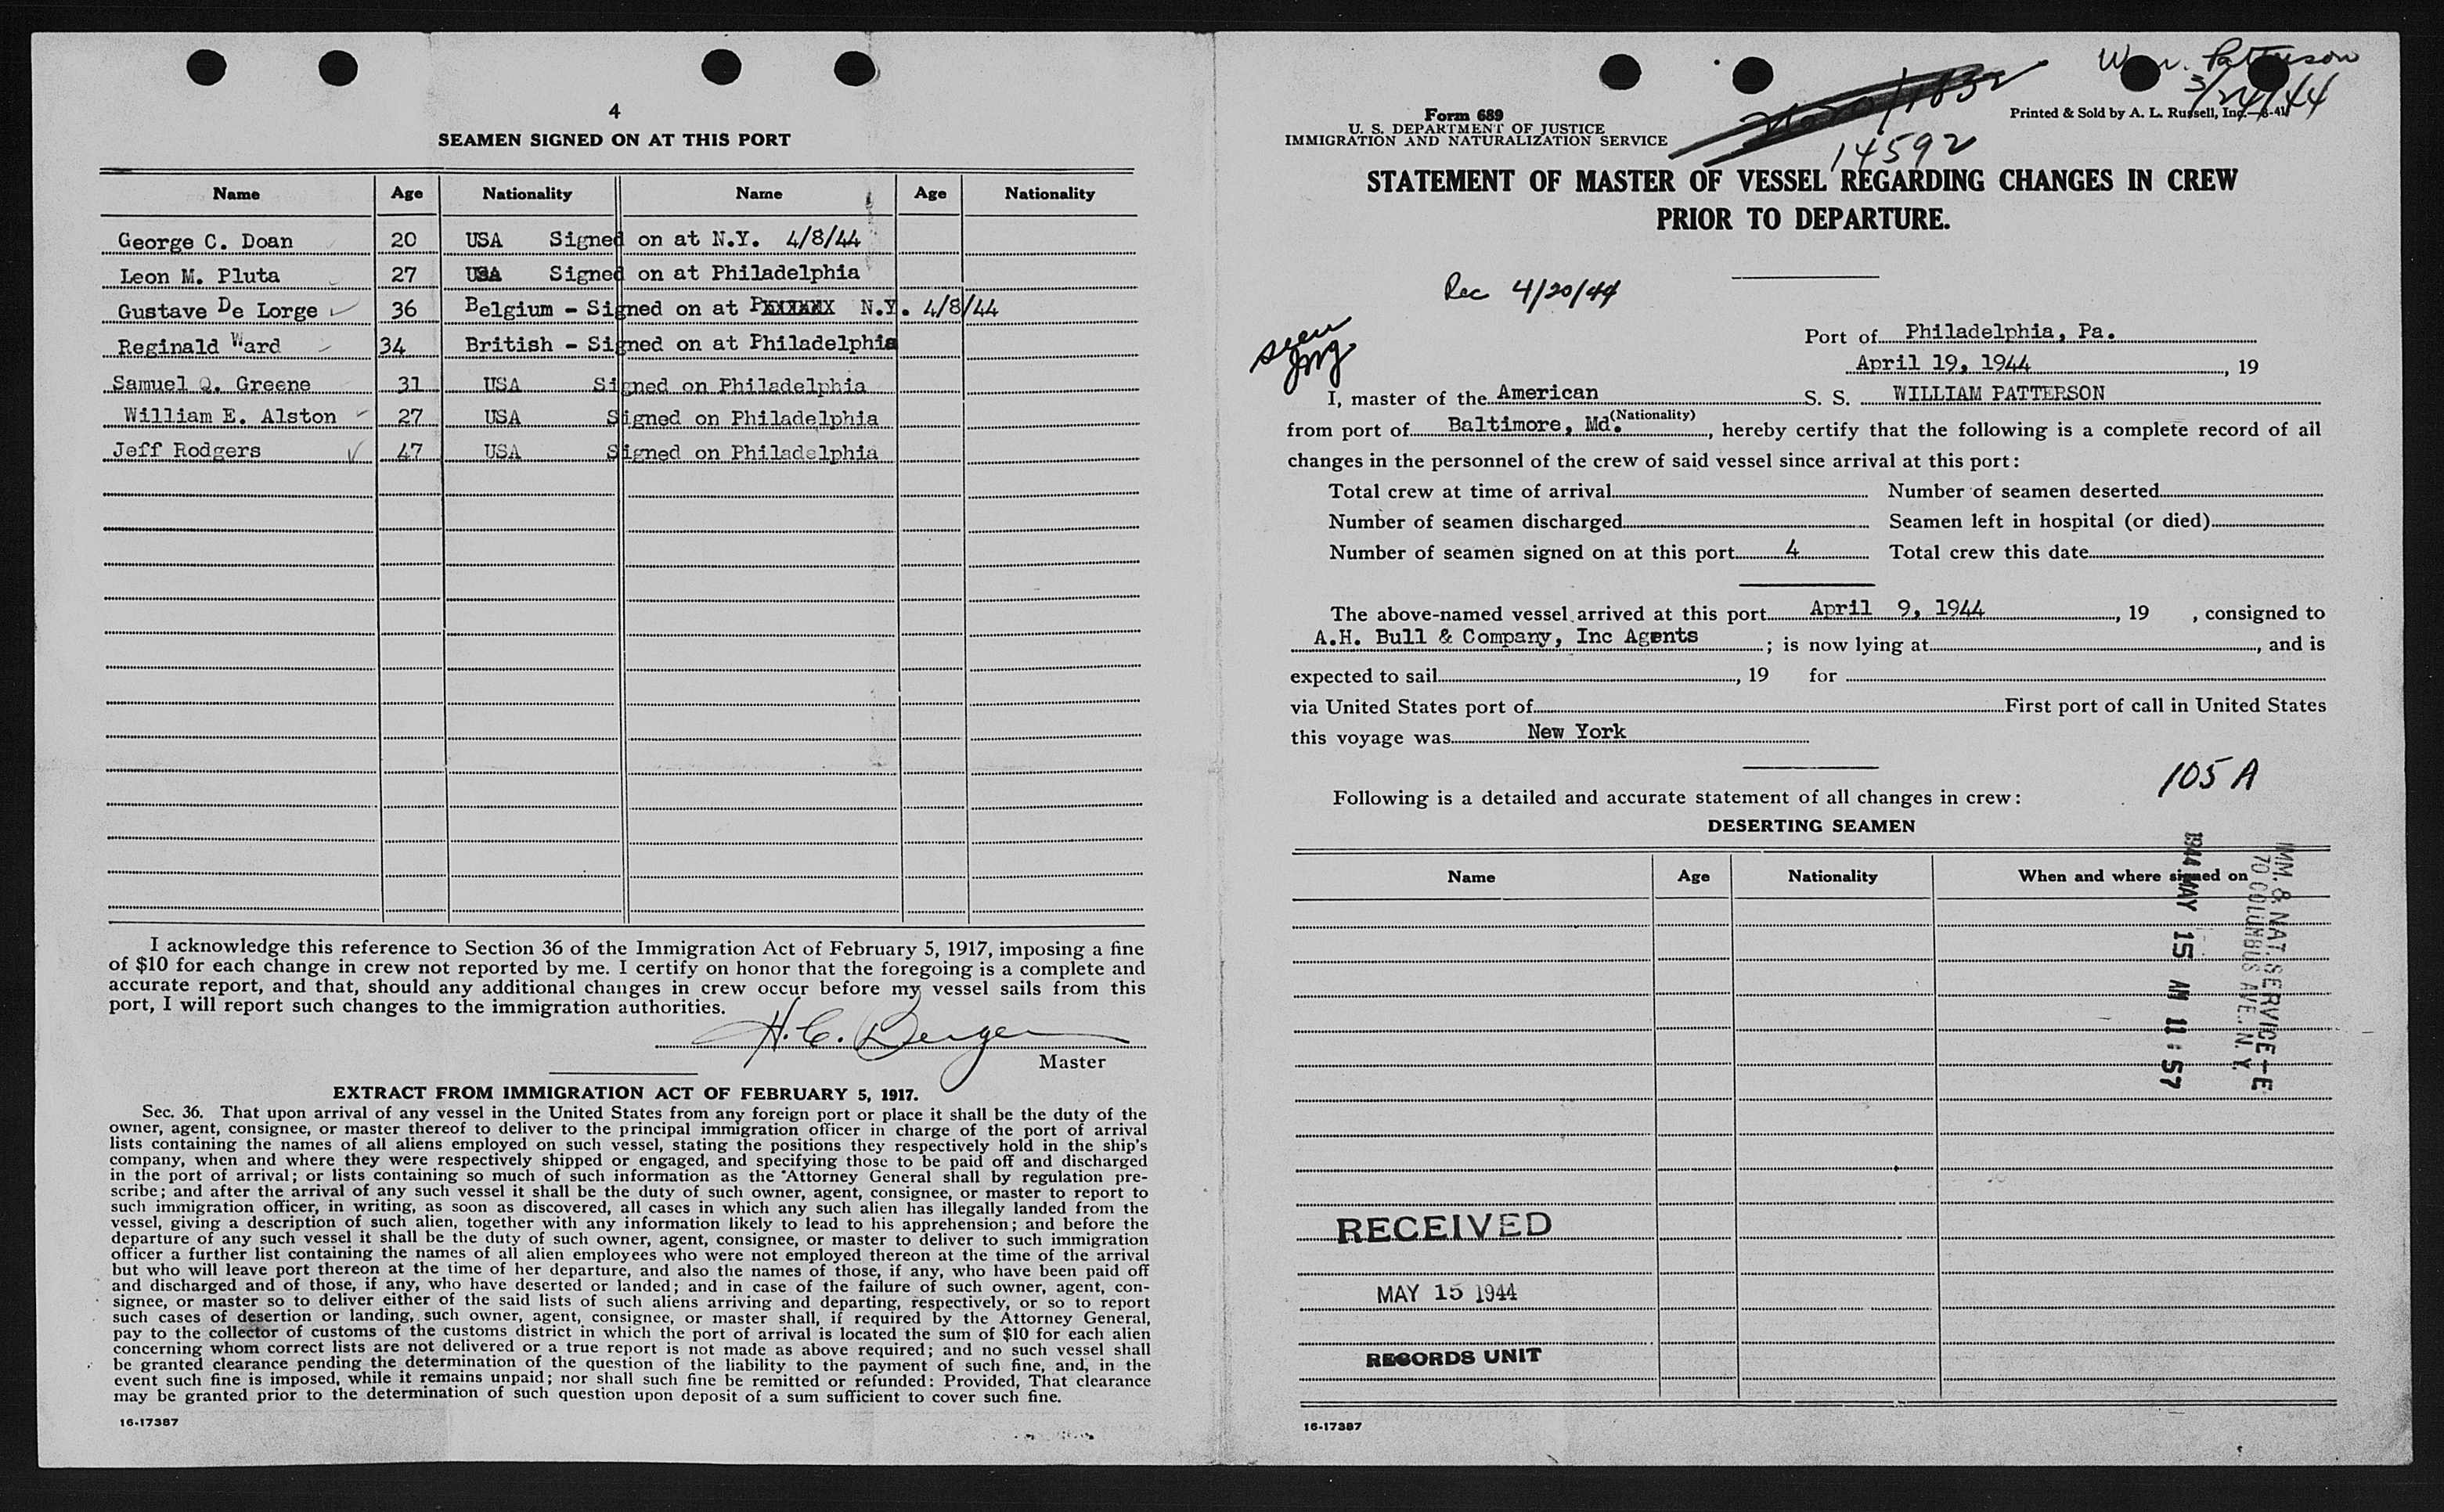 4
SEAMEN SIGNED ON AT THIS PORT
Name Age Nationality Name Age Nationality
George C. Doan 20 USA Signed on at N.Y. 4/8/44
Leon M. Pluta 27 USA Signed on at Philadelphia
Gustave De Lorge 36 Belgium - Signed on at PXXXXXX N.Y. 4/8/44
Reginald Ward 34 British - Signed on at Philadelphia
Samuel Q. Greene 31 USA Signed on Philadelphia
William E. Alston 27 USA Signed on Philadelphia
Jeff Rodgers 47 USA Signed on Philadelphia
I acknowledge this reference to Section 36 of the Immigration Act of February 5, 1917, imposing a fine
of $10 for each change in crew not reported by me. I certify on honor that the foregoing is a complete and
accurate report, and that, should any additional changes in crew occur before my vessel sails from this
port, I will report such changes to the immigration authorities.
H. C. Berger
Master
EXTRACT FROM IMMIGRATION ACT OF FEBRUARY 5, 1917.
Sec. 36. That upon arrival of any vessel in the United States from any foreign port or place it shall be the duty of the
owner, agent, consignee, or master thereof to deliver to the principal immigration officer in charge of the port of arrival
lists containing the names of all aliens employed on such vessel, stating the positions they respectively hold in the ship's
company, when and where they were respectively shipped or engaged, and specifying those to be paid off and discharged
in the port of arrival; or lists containing so much of such information as the Attorney General shall by regulation pre-
scribe; and after the arrival of any such vessel it shall be the duty of such owner, agent, consignee, or master to report to
such immigration officer, in writing, as soon as discovered, all cases in which any such alien has illegally landed from the
vessel, giving a description of such alien, together with any information likely to lead to his apprehension; and before the
departure of any such vessel it shall be the duty of such owner, agent, consignee, or master to deliver to such immigration
officer a further list containing the names of all alien employees who were not employed thereon at the time of the arrival
but who will leave port thereon at the time of her departure, and also the names of those, if any, who have been paid off
and discharged and of those, if any, who have deserted or landed; and in case of the failure of such owner, agent, con-
signee, or master so to deliver either of the said lists of such aliens arriving and departing, respectively, or so to report
such cases of desertion or landing, such owner, agent, consignee, or master shall, if required by the Attorney General,
pay to the collector of customs of the customs district in which the port of arrival is located the sum of $10 for each alien
concerning whom correct lists are not delivered or a true report is not made as above required; and no such vessel shall
be granted clearance pending the determination of the question of the liability to the payment of such fine, and, in the
event such fine is imposed, while it remains unpaid; nor shall such fine be remitted or refunded: Provided, That clearance
may be granted prior to the determination of such question upon deposit of a sum sufficient to cover such fine.
16-17387
Wm. Patterson
3/24/44
Form 689
U. S. DEPARTMENT OF JUSTICE
IMMIGRATION AND NATURALIZATION SERVICE
Printed & Sold by A. L. Russell, Inc.—8-41
14592
STATEMENT OF MASTER OF VESSEL REGARDING CHANGES IN CREW
PRIOR TO DEPARTURE.
Rec 4/20/44
seen
Port of Philadelphia, Pa.
April 19, 1944, 19
I, master of the American S. S. WILLIAM PATTERSON
(Nationality)
from port of Baltimore, Md., hereby certify that the following is a complete record of all
changes in the personnel of the crew of said vessel since arrival at this port:
Total crew at time of arrival Number of seamen deserted
Number of seamen discharged Seamen left in hospital (or died)
Number of seamen signed on at this port 4 Total crew this date
The above-named vessel arrived at this port April 9, 1944, 19 , consigned to
A.H. Bull & Company, Inc Agents; is now lying at , and is
expected to sail , 19 for
via United States port of First port of call in United States
this voyage was New York
105 A
Following is a detailed and accurate statement of all changes in crew:
DESERTING SEAMEN
Name Age Nationality When and where signed on
IMM. & NAT. SERVICE-E
70 COLUMBUS AVE., N.Y.
1944 MAY 15 AM 11:57
RECEIVED
MAY 15 1944
RECORDS UNIT
16-17387